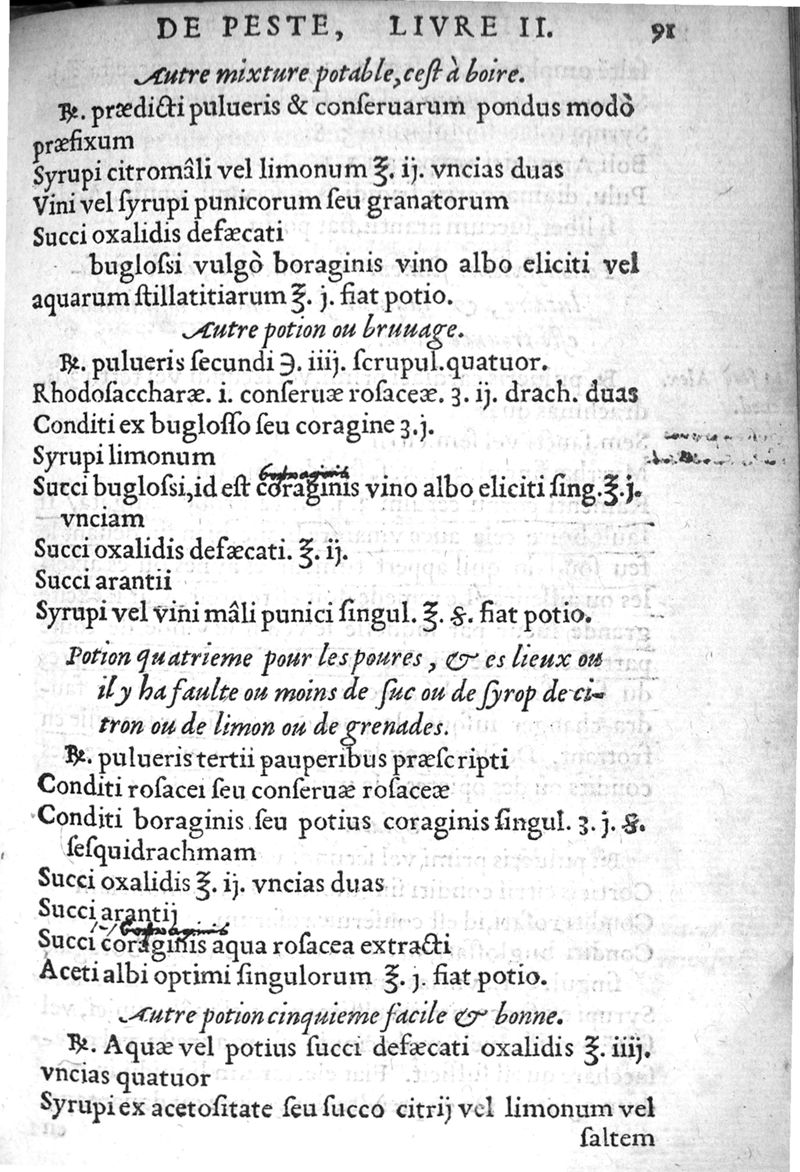 DE PESTE, LIVRE II. 91
Autre mixture potable, cest à boire.
℞. prædicti pulueris & conseruarum pondus modò
præfixum
Syrupi citromâli vel limonum ℥. ij. vncias duas
Vini vel syrupi punicorum seu granatorum
Succi oxalidis defæcati
buglossi vulgò boraginis vino albo eliciti vel
aquarum stillatitiarum ℥. j. fiat potio.
Autre potion ou bruuage.
℞. pulueris secundi ℈. iiij. scrupul. quatuor.
Rhodosaccharæ. i. conseruæ rosaceæ. ʒ. ij. drach. duas
Conditi ex buglosso seu coragine ʒ. j.
Syrupi limonum
Succi buglossi, id est coraginis vino albo eliciti sing. ℥. j.
vnciam
Succi oxalidis defæcati. ℥. ij.
Succi arantii
Syrupi vel vini mâli punici singul. ℥. ß. fiat potio.
Potion quatrieme pour les poures, & es lieux ou
il y ha faulte ou moins de suc ou de syrop de ci-
tron ou de limon ou de grenades.
℞. pulueris tertii pauperibus præscripti
Conditi rosacei seu conseruæ rosaceæ
Conditi boraginis seu potius coraginis singul. ʒ. j. ß.
sesquidrachmam
Succi oxalidis ℥. ij. vncias duas
Succi arantij
Succi coraginis aqua rosacea extracti
Aceti albi optimi singulorum ℥. j. fiat potio.
Autre potion cinquieme facile & bonne.
℞. Aquæ vel potius succi defæcati oxalidis ℥. iiij.
vncias quatuor
Syrupi ex acetositate seu succo citrij vel limonum vel
saltem